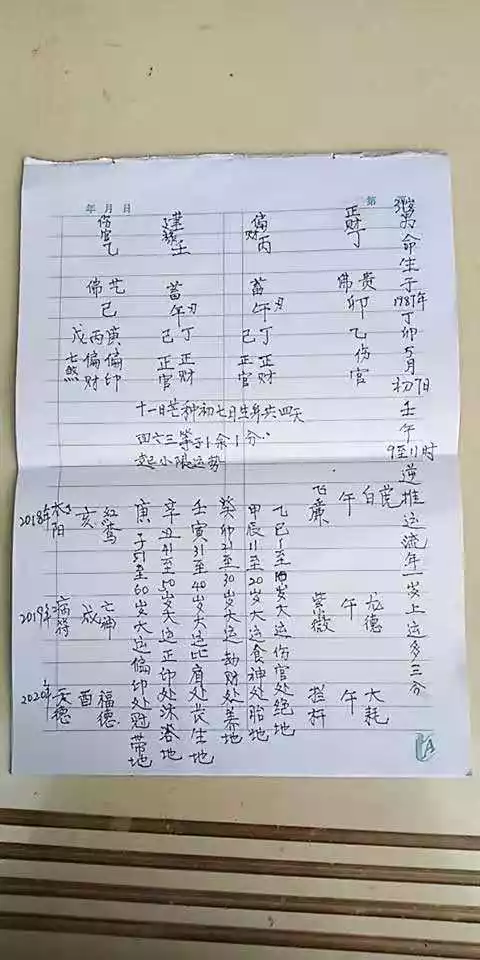 年 月 日
第
命生于1987年丁卯5月初7日壬午9至11时逆推运流年一岁上运多三分
正财丁
贵佛
卯
乙伤官
偏财丙
蓄午刃
己丁
正官 正财
壬
蓄午刃
己丁
正官 正财
伤官乙
佛艺
巳
戊丙庚
七煞 偏财 偏印
十一日芒种初七日生年共四天
四六三等于1余1分
起小限运势
白虎 午 飞廉
龙德 午 紫微
大耗 午 拦杆
乙巳1至10岁大运伤官处绝地
甲辰11至20岁大运食神处胎地
癸卯21至30岁大运劫财处养地
壬寅31至40岁大运比肩处长生地
辛丑41至50岁大运正印处沐浴地
庚子51至60岁大运偏印处冠带地
2018年太阳 亥 红鸾
2019年病符 戌 亡神
2020年天德 酉 福德